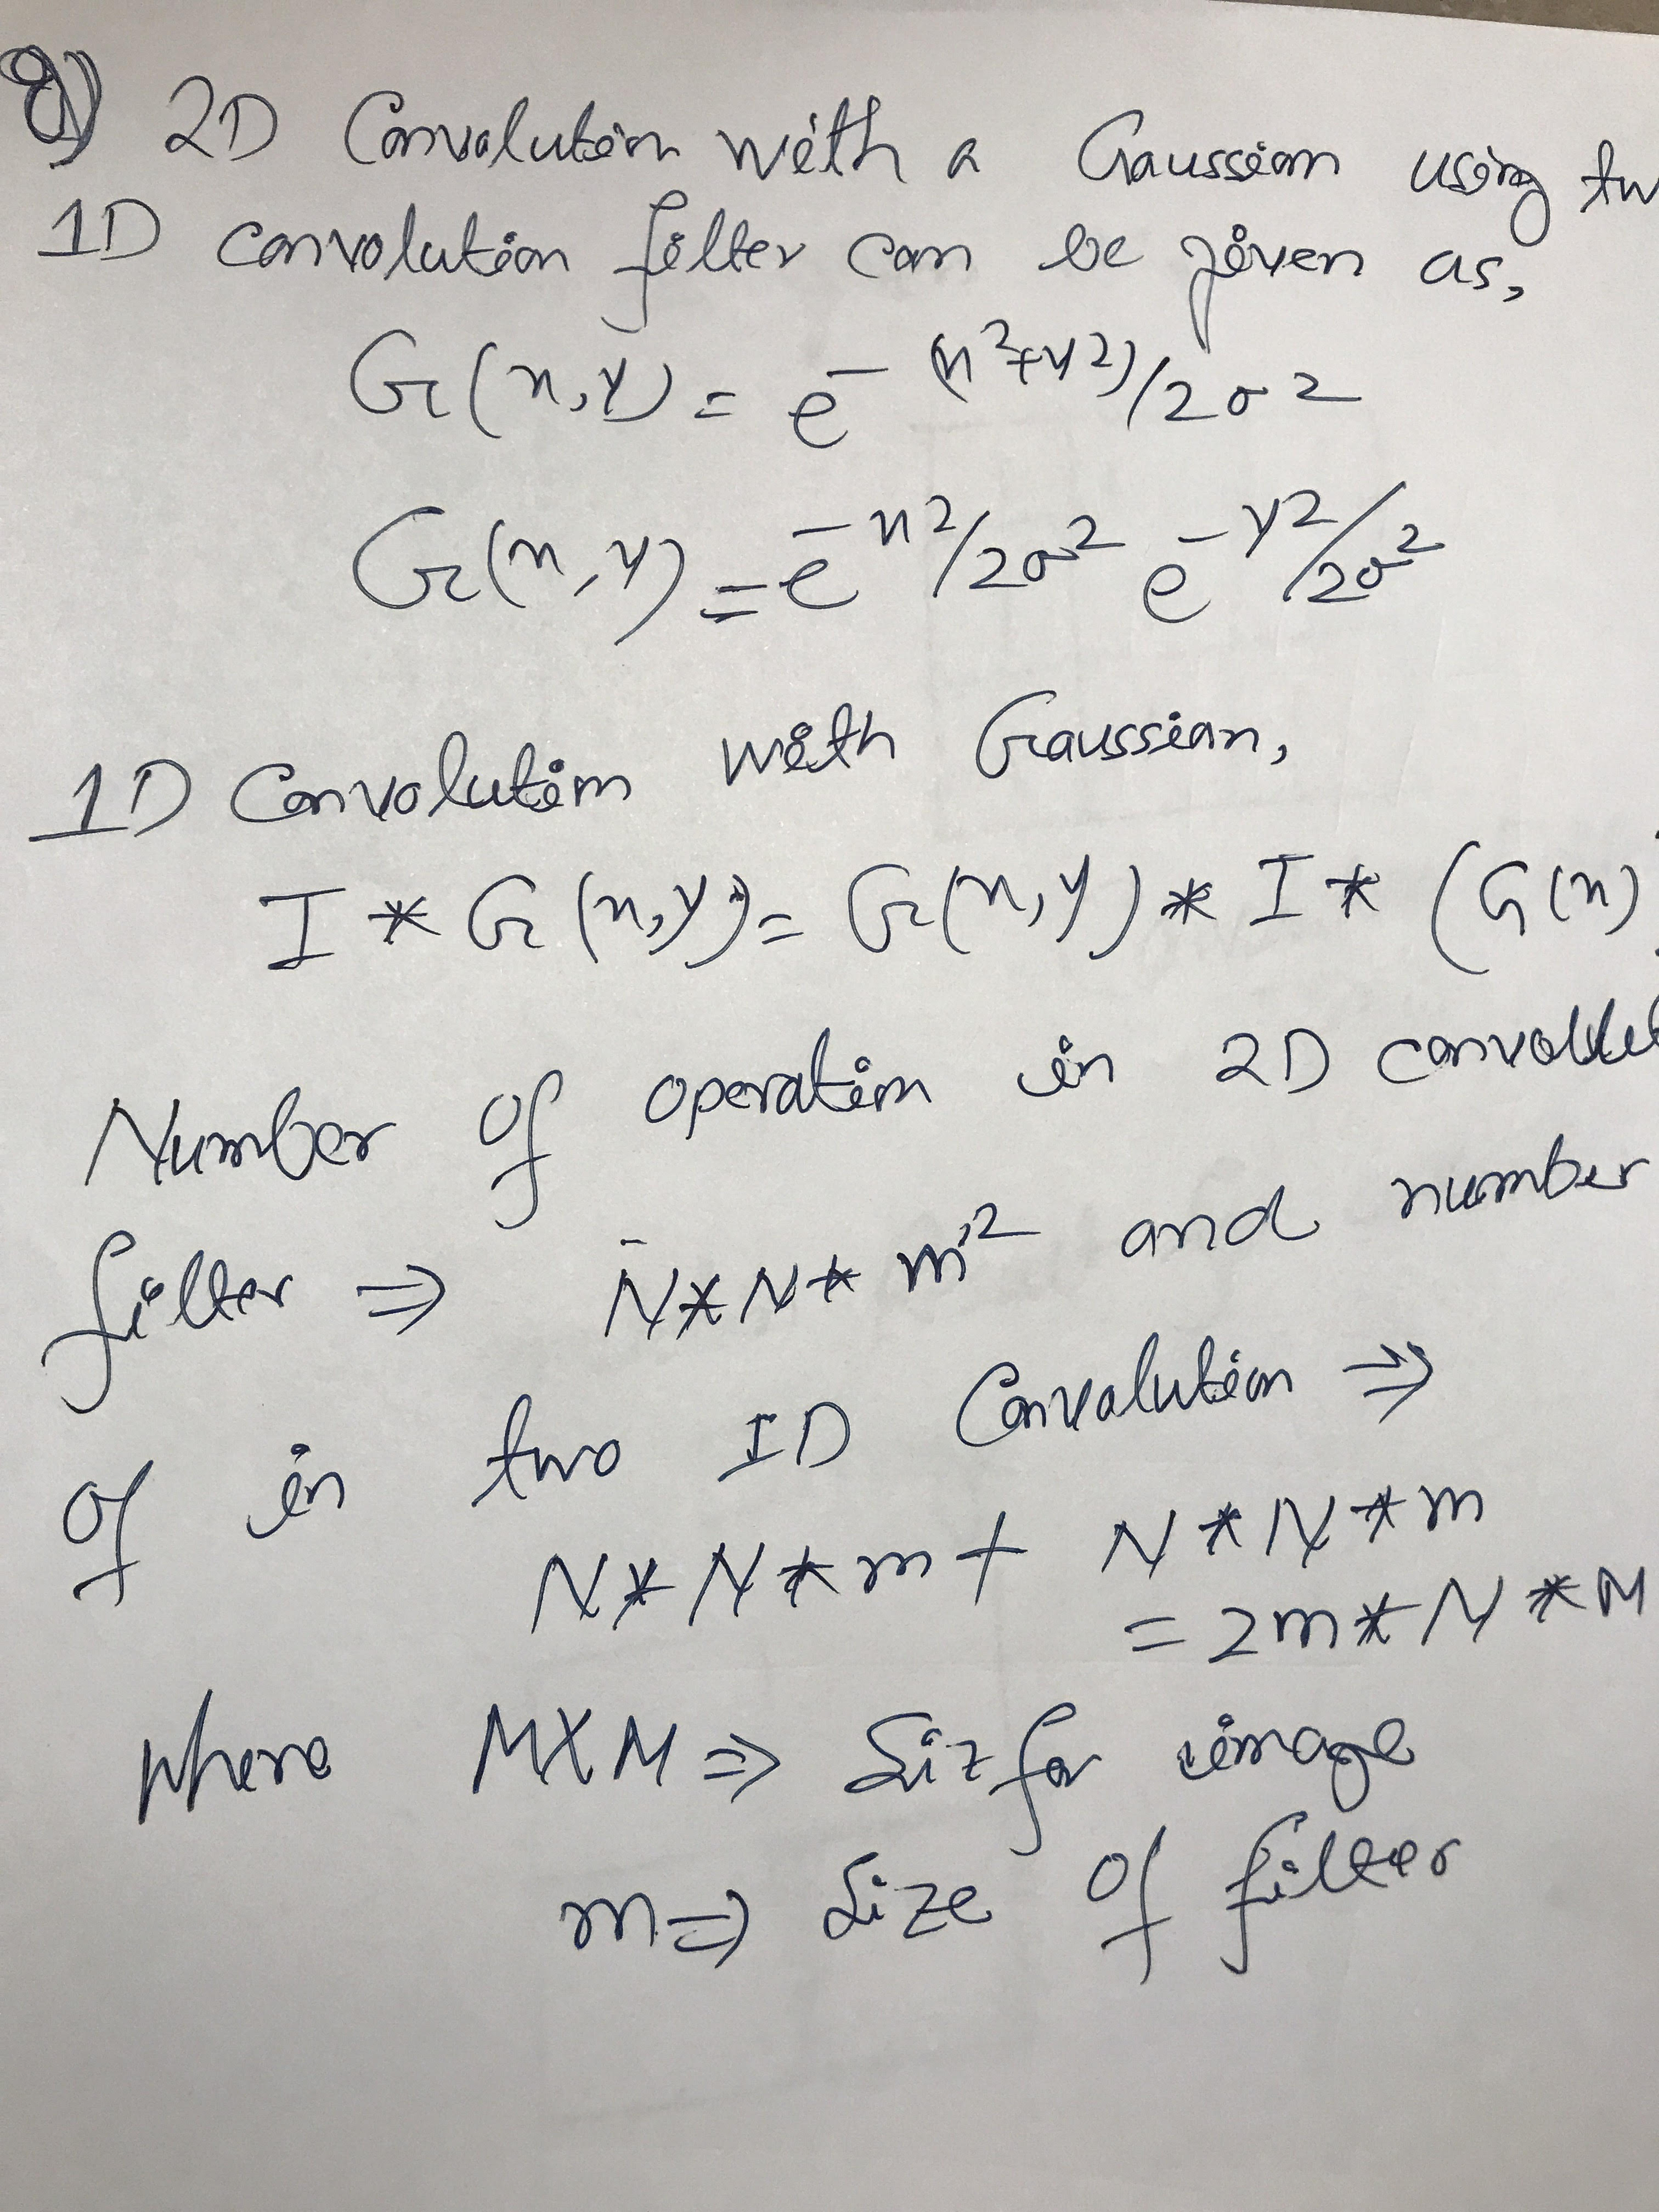 8) 2D Convolution with a Gaussian using tw
1D convolution filter can be given as,
G(x,y) = e^-(x^2+y^2)/2σ^2
G(x,y) = e^-x^2/2σ^2 e^-y^2/2σ^2
1D Convolution with Gaussian,
I * G(x,y) = G(x,y) * I * (G(x)
Number of operation in 2D convolut
filter ⇒ N*N*m^2 and number
of in two 1D Convolution ⇒
N*N*m + N*N*m
= 2m*N*N
Where N×N ⇒ Siz for image
m ⇒ Size of filter